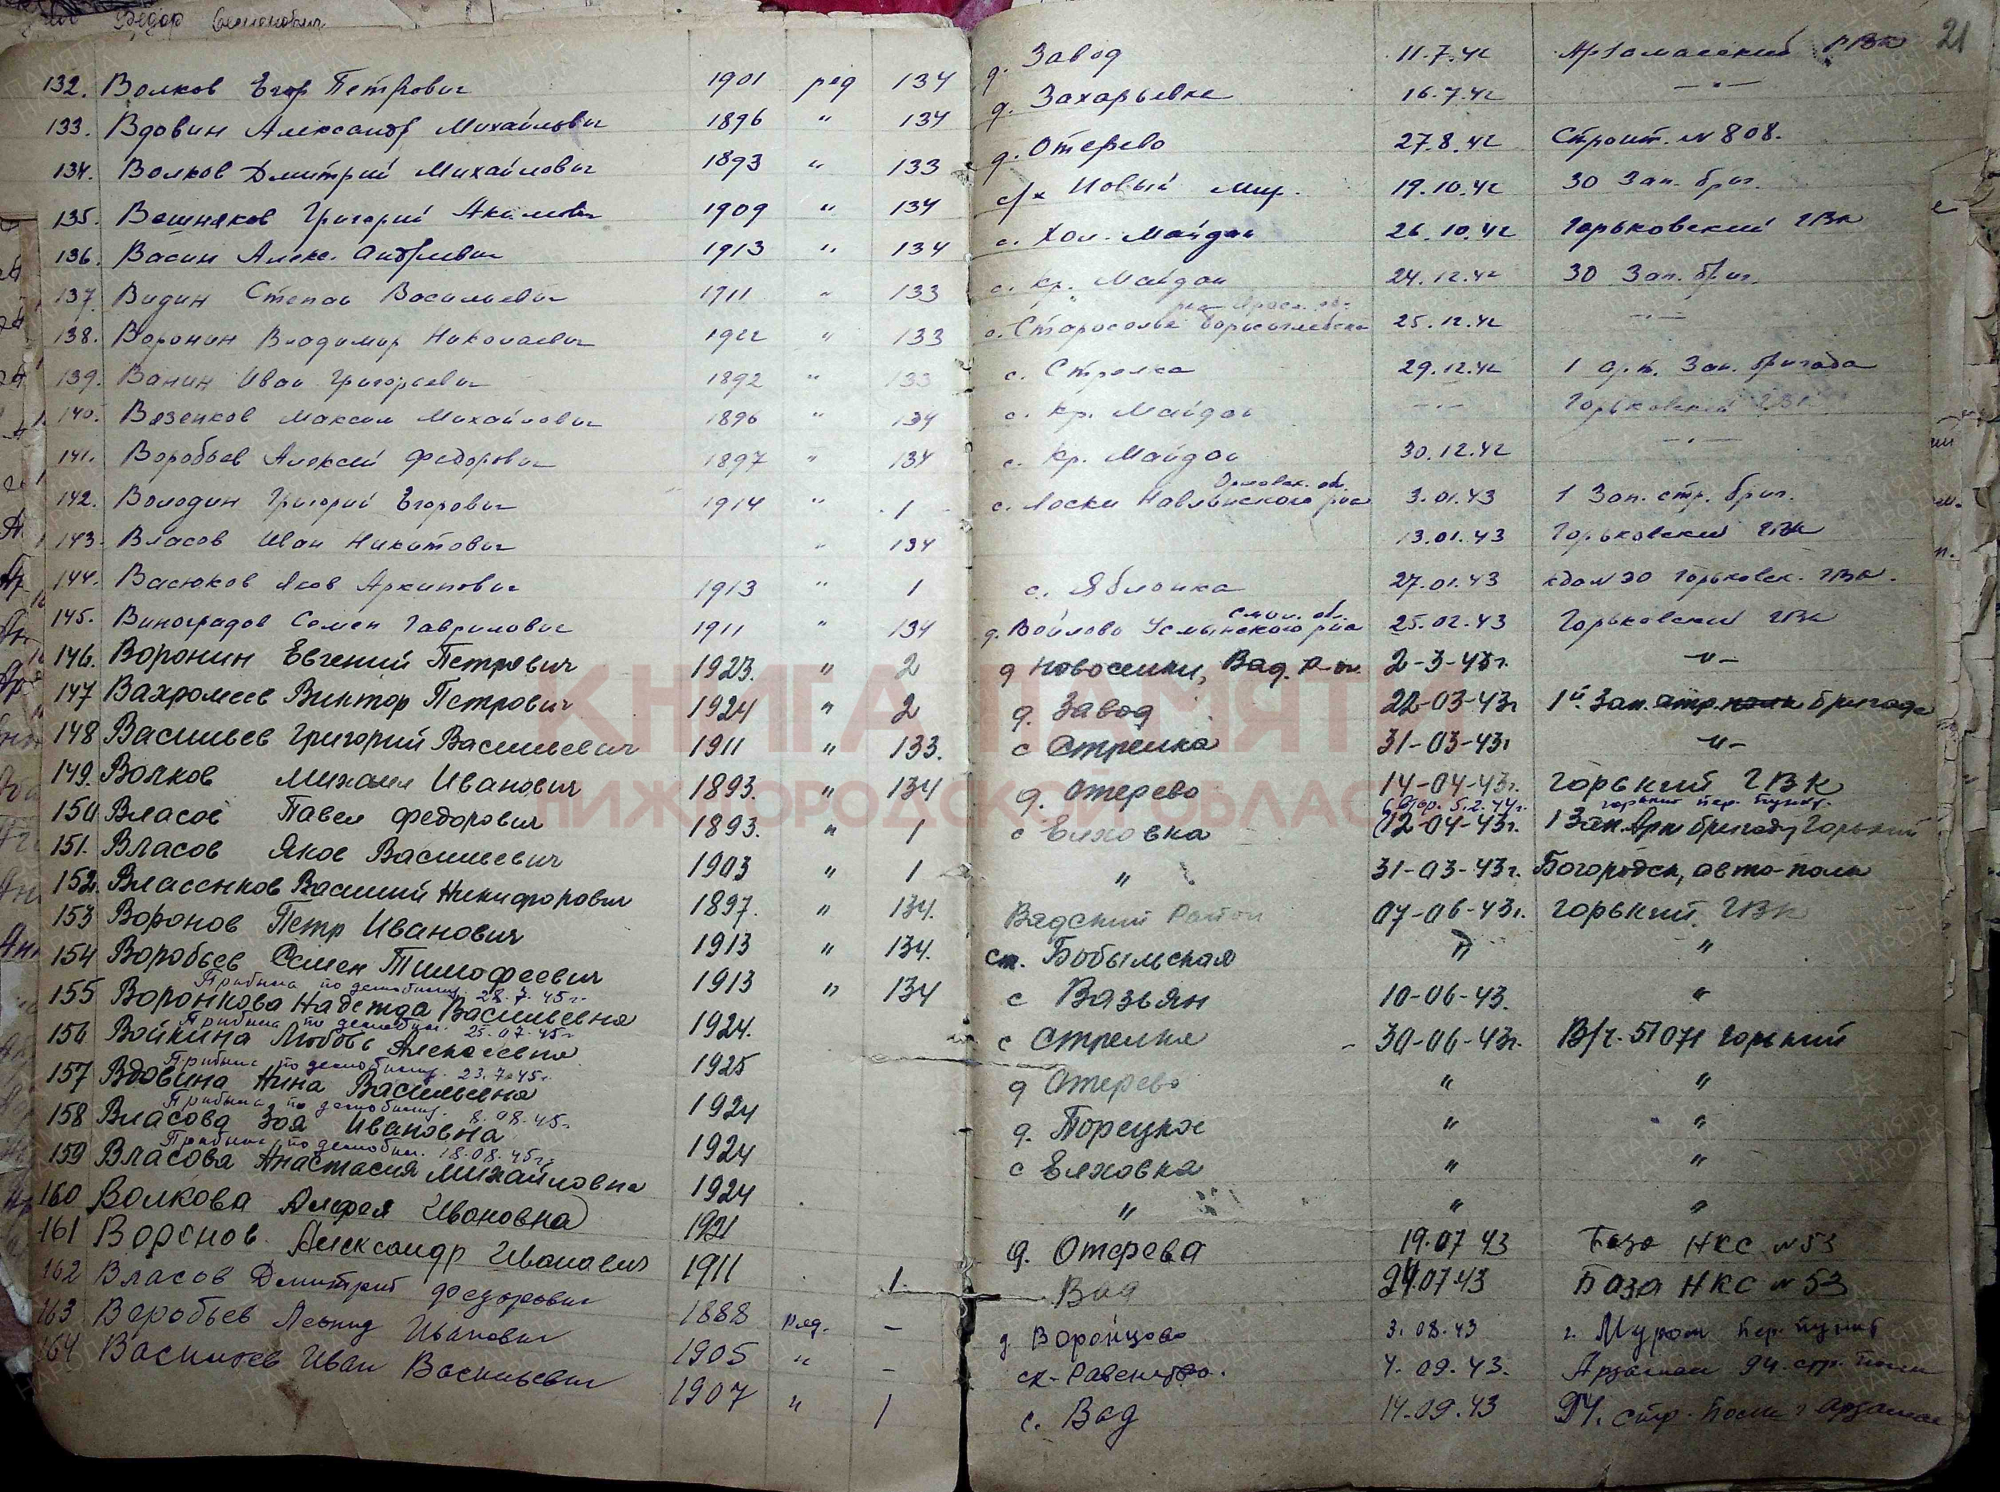 Федор Семенович
21
132. Волков Егор Петрович 1901 ряд 134 д. Завод 11.7.42 Арзамасский РВК
133. Вдовин Александр Михайлович 1896 " 134 д. Захарьевка 16.7.42 —"—
134. Волков Дмитрий Михайлович 1893 " 133 д. Отерево 27.8.42 Строит. № 808.
135. Вешняков Григорий Акимович 1909 " 134 с/х Новый мир. 19.10.42 30 Зап. бриг.
136. Васин Алекс. Андреевич 1913 " 134 с. Хол. Майдан 26.10.42 Горьковский ГВК
137. Видин Степан Васильевич 1911 " 133 с. Кр. Майдан 24.12.42 30 Зап. бриг.
138. Воронин Владимир Николаевич 1922 " 133 с. Староселье Борисоглебска 25.12.42 —"—
139. Ванин Иван Григорьевич 1892 " 133 с. Стрелка 29.12.42 1 Зап. бригада
140. Вязенков Максим Михайлович 1896 " 134 с. Кр. Майдан —"— Горьковский ГВК
141. Воробьев Алексей Федорович 1897 " 134 с. Кр. Майдан 30.12.42 —"—
Орловск. об.
142. Володин Григорий Егорович 1914 " 1 с. Лоски Навлинского р-на 3.01.43 1 Зап. стр. бриг.
143. Власов Иван Никитович " 134 13.01.43 Горьковский ГВК
144. Васюков Яков Архипович 1913 " 1 с. Яблонка 27.01.43 Горьковск. ГВК.
Смол. об.
145. Виноградов Семен Гаврилович 1911 " 134 д. Войлово Усмынского р-на 25.02.43 Горьковский ГВК
146. Воронин Евгений Петрович 1923. " 2 д Новоселки, Вад. р-он. 2-3-43г. —"—
147 Вахромеев Виктор Петрович 1924 " 2 д. Завод 22-03-43г 1й Зап. стр. бригада
148 Васильев Григорий Васильевич 1911 " 133. с Стрелка 31-03-43г —"—
149. Волков Михаил Иванович 1893. " 134 д. Отерево 14-04-43г. Горький ГВК
5.2.44г. Горький пер. пункт.
150 Власов Павел Федорович 1893. " 1 с Елховка 12-04-43г. 1 Зап. Арт бригаду Горький
151. Власов Яков Васильевич 1903 " 1 " 31-03-43г. Богородск, авто-полк
152. Власенков Василий Никифорович 1897. " 134. Вадский Район 07-06-43г. Горький. ГВК
153 Воронов Петр Иванович 1913 " 134. ст. Бобыльская " "
154 Воробьев Семен Тимофеевич 1913 " 134 с Вазьян 10-06-43. "
Прибыла по демобилиз. 28.7.45г.
155 Воронкова Надежда Васильевна 1924. с Стрелка 30-06-43г. В/ч. 51071 Горький
Прибыла по демобил. 25.07.45г
156 Войкина Любовь Алексеевна 1925 д Отерево " "
Прибыла по демобилиз. 23.7.45г.
157 Вдовина Нина Васильевна 1924 д. Порецкое " "
Прибыла по демобилиз. 8.08.45г.
158 Власова Зоя Ивановна 1924 с Елховка " "
Прибыла по демобил. 18.08.45г.
159 Власова Анастасия Михайловна 1924 " " "
160 Волкова Алефея Ивановна 1921 д. Отерева 19.07 43 База НКС № 53
161 Воронов Александр Иванович 1911 1. Вад 24.07.43 База НКС № 53
162 Власов Дмитрий Федорович 1888 ряд. — д. Воронцово 3.08.43 г. Муром пер. пункт
163 Воробьев Леонид Иванович 1905 " — Равенство. 4.09.43. Арзамас 94. стр. полк
164 Васильев Иван Васильевич 1907 " 1 с. Вад 14.09.43 94. стр. полк г Арзамас
КНИГА ПАМЯТИ
НИЖЕГОРОДСКОЙ ОБЛАСТИ